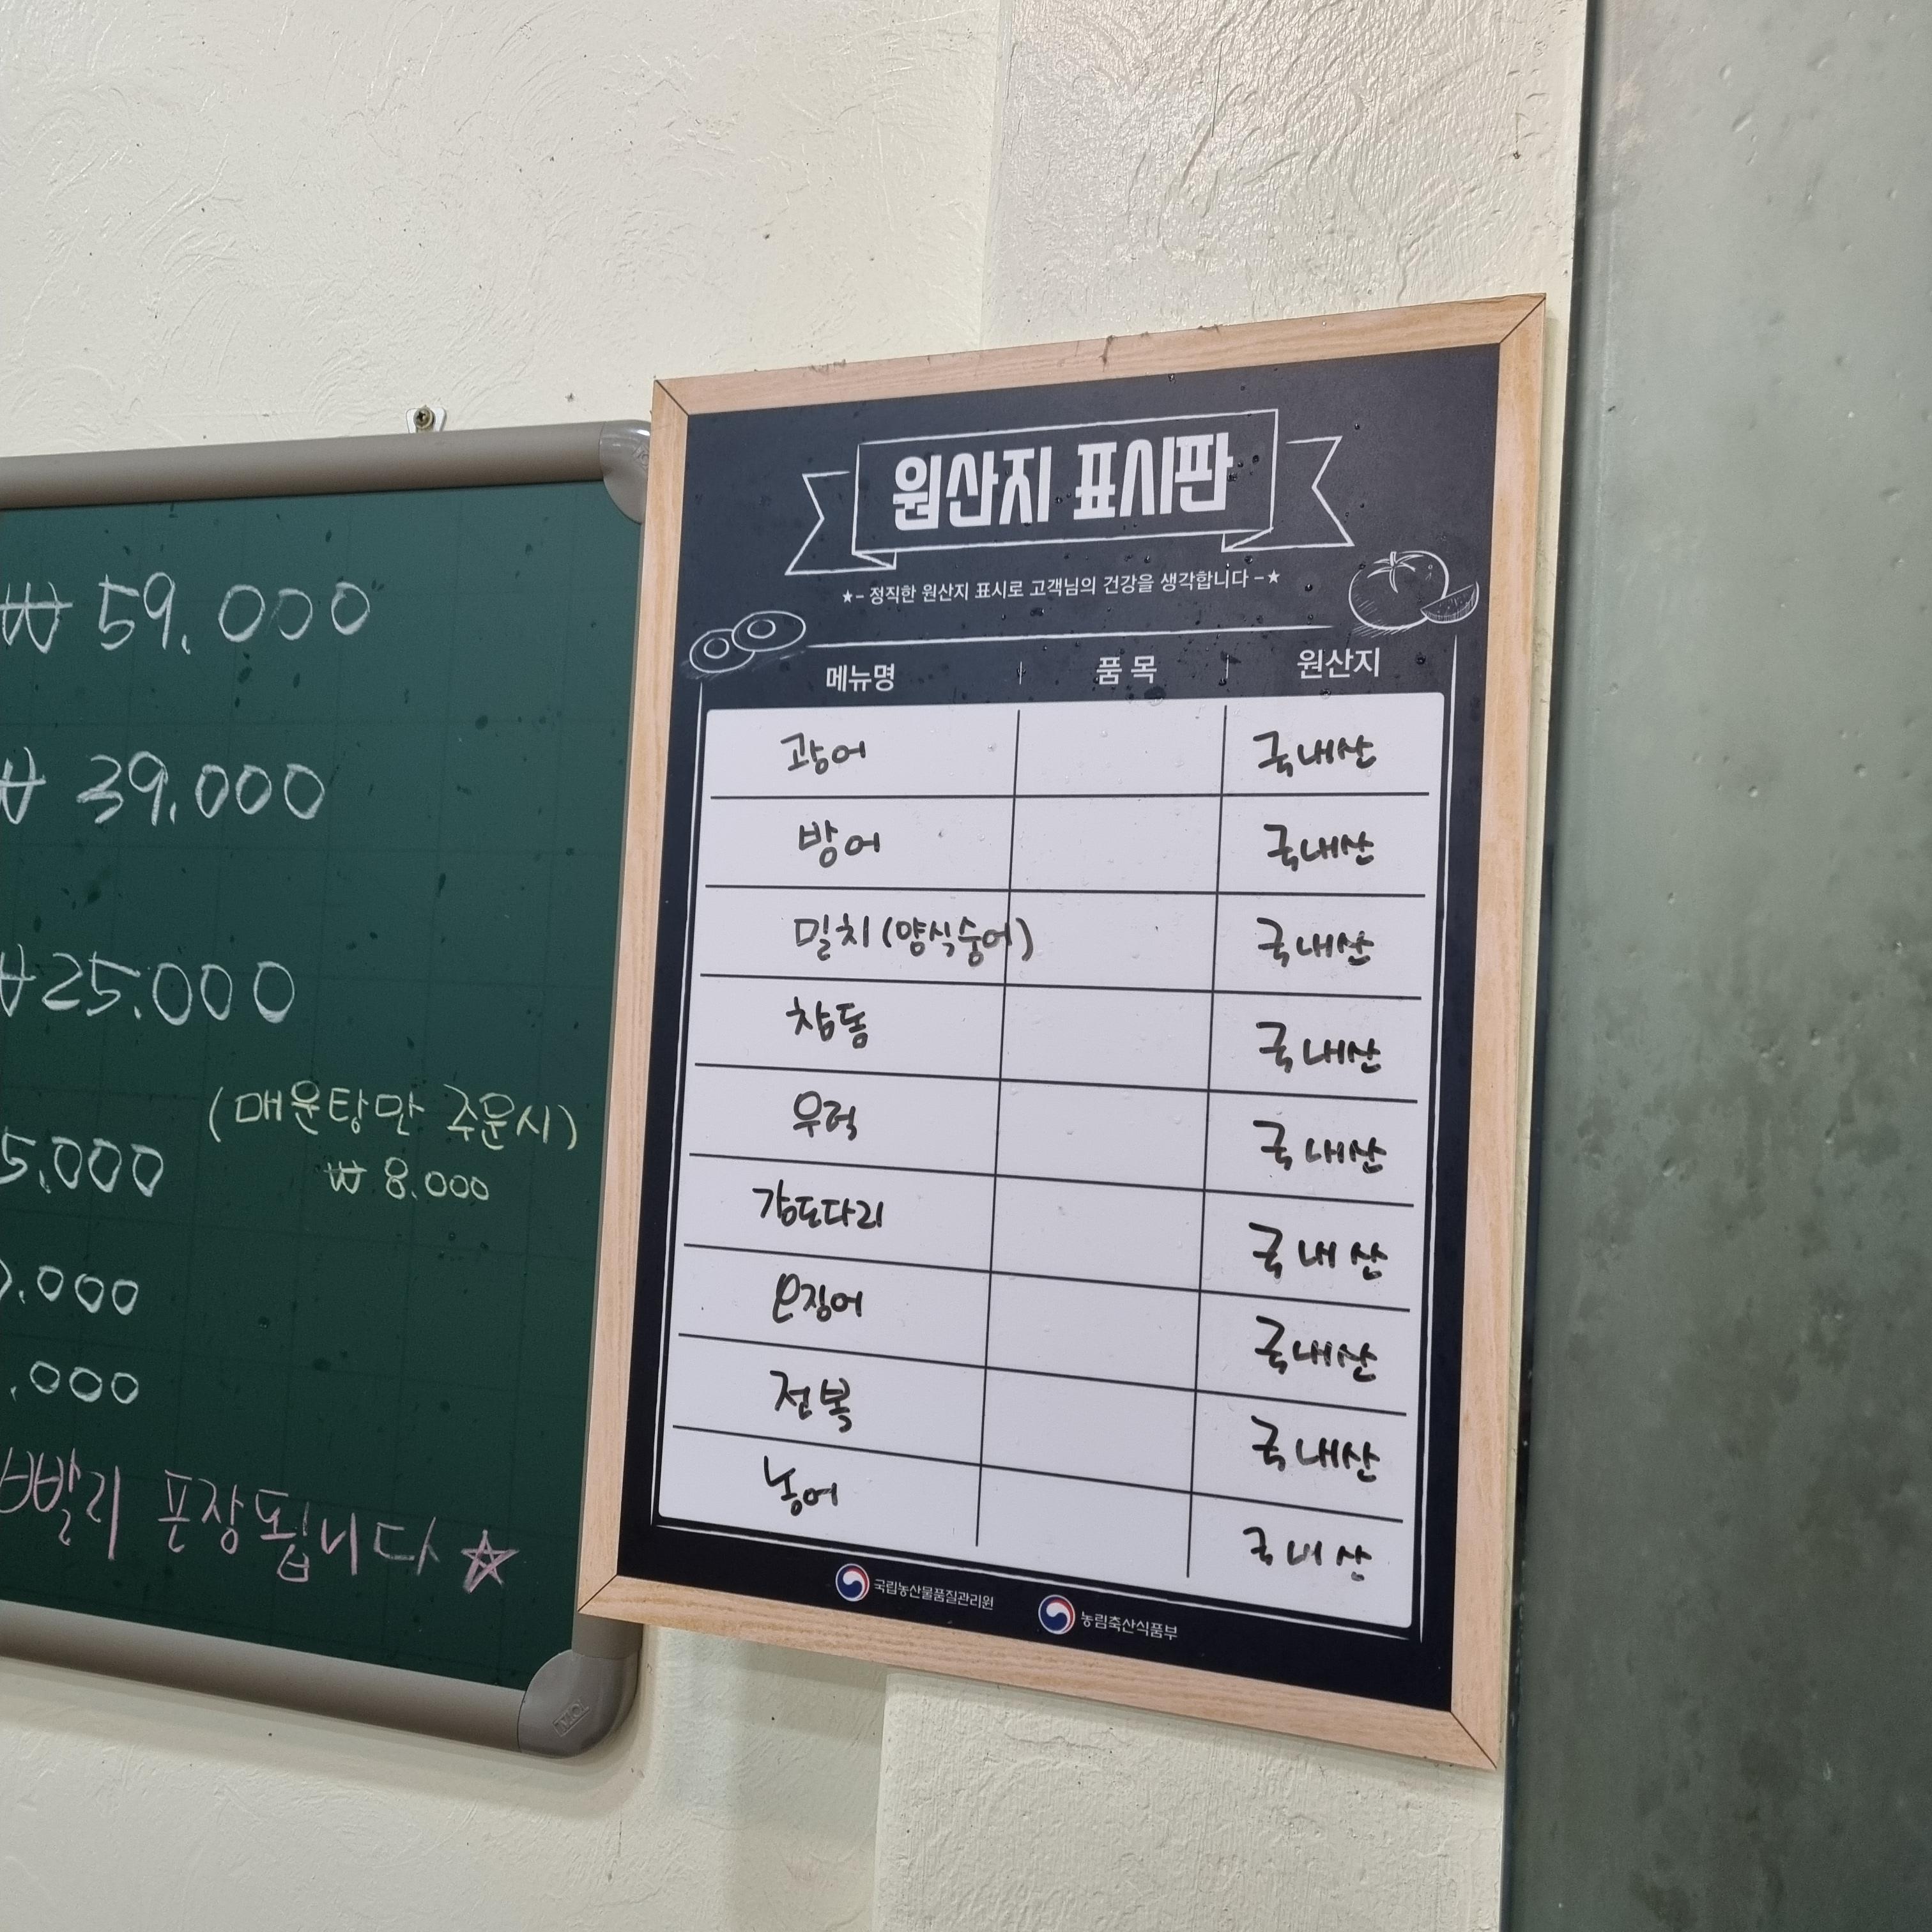 ₩ 59.000
₩ 39.000
₩25.000
5.000
(매운탕만 주문시)
₩ 8.000
.000
.000
포장됩니다 ☆
원산지 표시판
★- 정직한 원산지 표시로 고객님의 건강을 생각합니다 -★
메뉴명 품목 원산지
광어 국내산
방어 국내산
밀치(양식숭어) 국내산
참돔 국내산
우럭 국내산
감도다리 국내산
오징어 국내산
전복 국내산
농어 국내산
국립농산물품질관리원 농림축산식품부